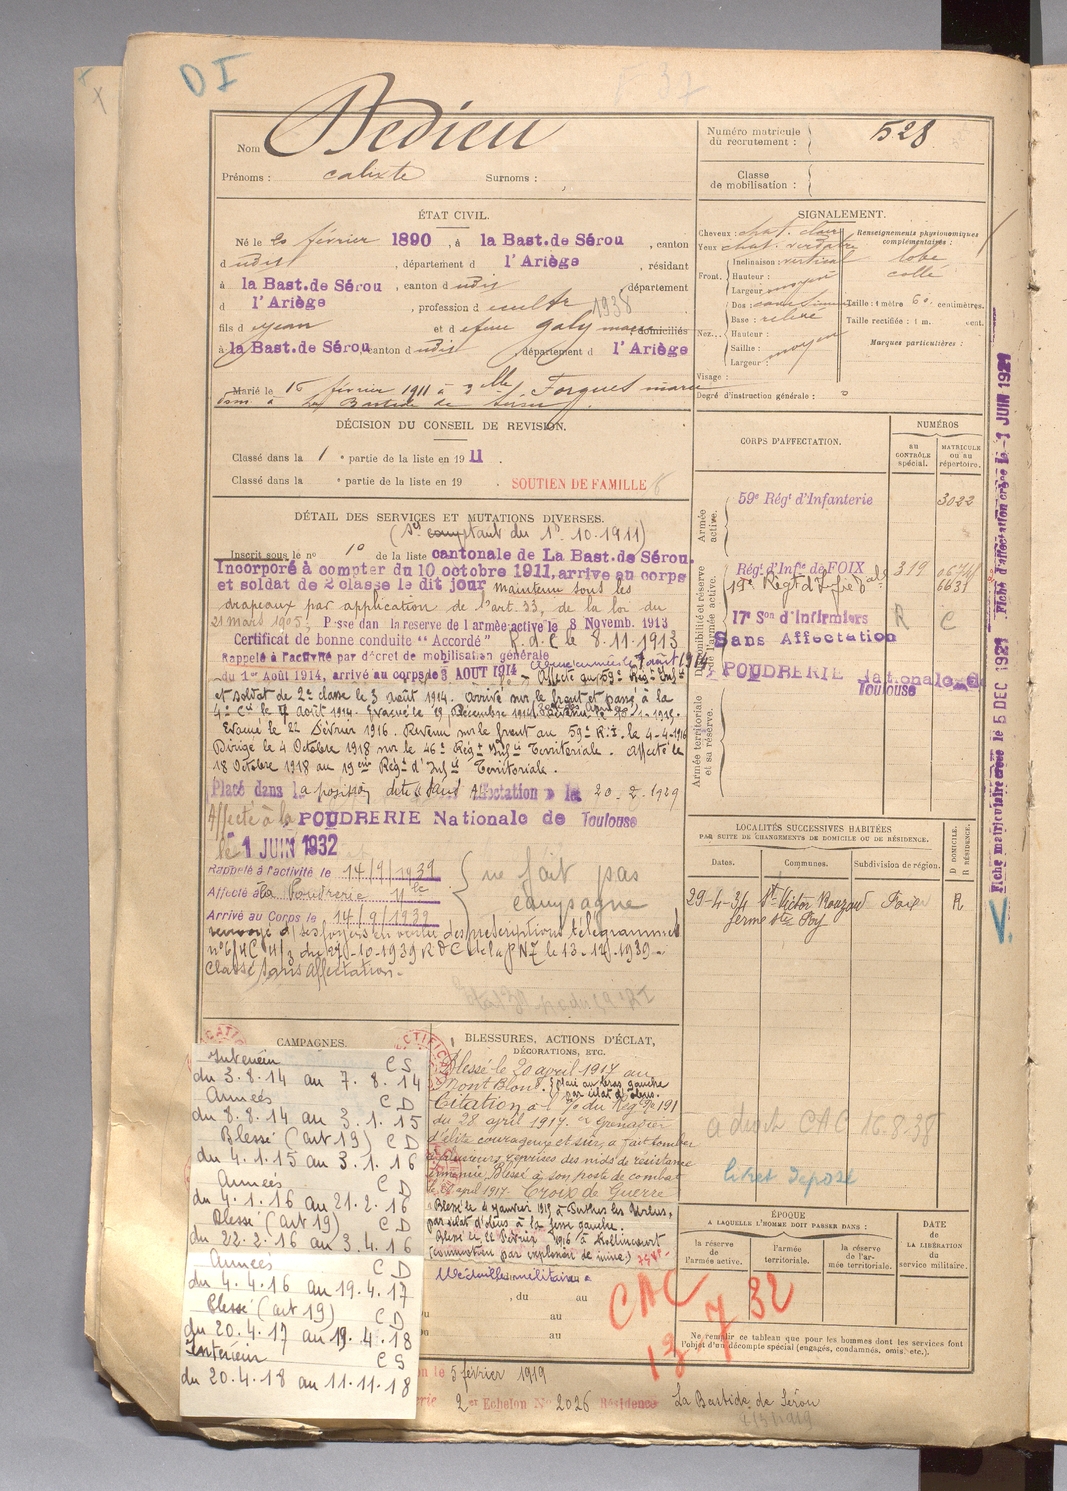 DI
Nom Dedieu
Prénoms : calixte Surnoms :
Numéro matricule du recrutement : 528
Classe de mobilisation :
ÉTAT CIVIL.
Né le 20 février 1890, à la Bast. de Sérou, canton
d udit, département d l'Ariège, résidant
à la Bast. de Sérou, canton d udit, département
d l'Ariège, profession d cultr 1938
fils d Jean et d Galy domiciliés
à la Bast. de Sérou, canton d udit, département d l'Ariège
Marié le 16 février 1911 à Mlle Forgues marie
dom. à La Bastide de Sérou
DÉCISION DU CONSEIL DE REVISION.
Classé dans la 1e partie de la liste en 1911.
Classé dans la e partie de la liste en 19 . SOUTIEN DE FAMILLE
DÉTAIL DES SERVICES ET MUTATIONS DIVERSES.
(Sce comptant du 1er 10-1911)
Inscrit sous le no 10 de la liste cantonale de La Bast. de Sérou.
Incorporé à compter du 10 octobre 1911, arrive au corps
et soldat de 2 classe le dit jour maintenu sous les
drapeaux par application de l'art. 33, de la loi du
21 mars 1905. Passe dans la reserve de l'armée active le 8 Novemb. 1913
Certificat de bonne conduite "Accordé" R.d.C le 8.11.1913
Rappelé à l'activité par décret de mobilisation générale
du 1er Août 1914, arrivé au corps le 3 AOUT 1914 Affecté au 59e Régt Infie
et soldat de 2e classe le 3 août 1914. Arrivé sur le front et passé à la
4e Cie le 7 Août 1914. Evacué le 19 Décembre 1914.
Evacué le 22 Février 1916. Revenu sur le front au 59e R.I. le 4-4-1916
Dirigé le 4 Octobre 1918 sur le 46e Régt Infie Territoriale. Affecté le
18 Octobre 1918 au 19eme Régt d'Infie Territoriale.
Placé dans la position dite "Sans Affectation" le 20-2-1929
Affecté à la POUDRERIE Nationale de Toulouse
le 1 JUIN 1932
Rappelé à l'activité le 14/9/1939
Affecté à la Poudrerie Nle
Arrivé au Corps le 14/9/1939
ne fait pas
campagne
renvoyé d/ses foyers en vertu des prescriptions télégrammes
Classé sans affectation.
SIGNALEMENT.
Cheveux : chat. clair
Yeux chat. verdatre
Front. Inclinaison : vertical
Hauteur :
Largeur moyen
Nez. Dos :
Base : relevé
Hauteur :
Saillie :
Largeur : moyen
Visage :
Degré d'instruction générale :
Renseignements physionomiques complémentaires :
lobe
collé
Taille : 1 mètre 60 centimètres.
Taille rectifiée : 1 m. cent.
Marques particulières :
CORPS D'AFFECTATION.
NUMÉROS
AU CONTRÔLE spécial.
MATRICULE OU AU répertoire.
Armée active.
59e Régt d'Infanterie 3022
Disponibilité et réserve de l'armée active.
Régt d'Infie de FOIX 319
19e Régt d'Infie Tale 6631
17e Son d'infirmiers R C
Sans Affectation
POUDRERIE Nationale de
Toulouse
Armée territoriale et sa réserve.
Fiche d'affectation créée le -1 JUIN 1921
Fiche matriculaire créée le 5 DEC 1921
V.
LOCALITÉS SUCCESSIVES HABITÉES
PAR SUITE DE CHANGEMENTS DE DOMICILE OU DE RÉSIDENCE.
Dates. Communes. Subdivision de région. D DOMICILE. R RÉSIDENCE.
29-4-34 St Victor Rouzaud Foix R
ferme Ste Foy
a droit CAC 16-8-38
livret déposé
ÉPOQUE
A LAQUELLE L'HOMME DOIT PASSER DANS :
la réserve de l'armée active.
l'armée territoriale.
la réserve de l'armée territoriale.
DATE DE LA LIBÉRATION du service militaire.
Ne remplir ce tableau que pour les hommes dont les services font
l'objet d'un décompte spécial (engagés, condamnés, omis, etc.).
CAMPAGNES.
Intérieur CS
du 3.8.14 au 7.8.14
Armées CD
du 8.8.14 au 3.1.15
Blessé (art 19) CD
du 4.1.15 au 3.1.16
Armées CD
du 4.1.16 au 21.2.16
Blessé (art 19) CD
du 22.2.16 au 3.4.16
Armées CD
du 4.4.16 au 19.4.17
Blessé (art 19) CD
du 20.4.17 au 19.4.18
Intérieur CS
du 20.4.18 au 11.11.18
BLESSURES, ACTIONS D'ÉCLAT,
DÉCORATIONS, ETC.
Blessé le 20 avril 1917 au
Mont Blond. plaie au bras gauche
par éclat d'obus.
Citation à l'/o du Régt No 191
du 28 avril 1917. Grenadier
d'élite courageux et sûr, a fait tomber
à plusieurs reprises des nids de résistance
ennemie. Blessé à son poste de combat
le avril 1917. Croix de Guerre
Blessé le 4 janvier 1915 à Perthes les Hurlus,
par éclat d'obus à la fesse gauche.
Blessé le 22 Février 1916 à Rollincourt
(commotion par explosion de mine.)
Médaille militaire
, du au
au
au
CAC
13-7 32
le 5 février 1919
2e Echelon No 2026 Résidence La Bastide de Sérou